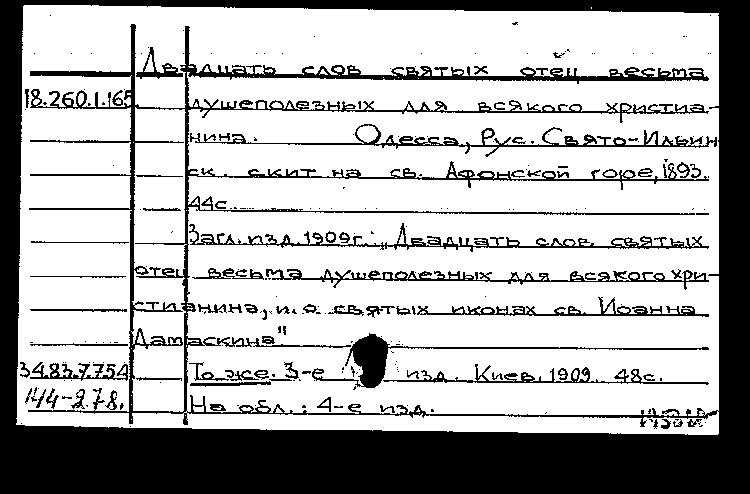 Двадцать слов святых отец весьма
18.260.1.165 душеполезных для всякого христиа-
нина. Одесса, Рус. Свято-Ильин
ск. скит на св. Афонской горе, 1893.
44с.
Загл. изд. 1909г.: „Двадцать слов святых
отец весьма душеполезных для всякого хри-
стианина, и о святых иконах св. Иоанна
Дамаскина"
34.83.7.754 То же. 3-е изд. Киев, 1909. 48с.
144-278. На обл.: 4-е изд.